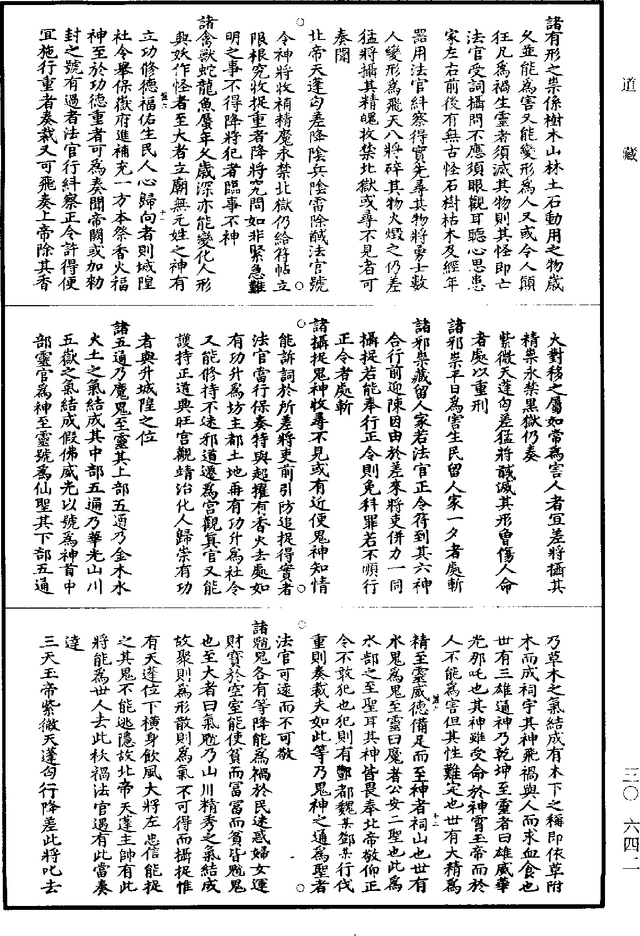 道藏
三〇—六四二
諸有形之祟係樹木山林土石動用之物歲
久並能為害又能變形為人又或令人顛
狂凡為禍生靈者須滅其物則其怪即亡
法官受詞攝問不應須眼觀耳聽心思患
家左右前後有無古怪石樹枯木及經年
器用法官糾察得實先尋其物將勇士數
人變形為飛天八將碎其物火燬之仍差
猛將攝其精魄收禁北獄或尋不見者可
奏聞
北帝天蓬勾差降陰兵陰雷除馘法官號
令神將收捕精魔永禁北獄仍給符帖立
限根究收捉重者降將究問如非緊急難
明之事不得降將犯者臨事不神
諸禽獸蛇龍魚蜃年久歲深亦能變化人形
與妖作怪者至大者立廟無元姓之神有
立功修德福佑生民人心歸向者則城隍
社令舉保嶽府進補充一方本祭香火福
神至於功德重者可為奏聞帝闕或加勑
封之號有過者法官行糾察正令許得便
宜施行重者奏裁又可飛奏上帝除其香
火對移之屬如常為害人者宜差將攝其
精祟永禁黑獄仍奏
紫微天蓬勾差猛將馘滅其形曾傷人命
者處以重刑
諸邪祟平日為害生民留人家一夕者處斬
諸邪祟藏留人家若法官正令得到其六神
合行前迎陳因由於差來將吏併力一同
攝捉若能奉行正令則免科罪若不順行
正令者處斬
諸攝捉鬼神收尋不見或有近便鬼神知情
能訴詞於所差將吏前引防追捉得實者
法官當行保奏特與超擢有香火去處如
有功升為坊主郡土地再有功升為社令
又能修持不迷邪道遷為宮觀真官又能
護持正道興旺宮觀靖治化人歸崇有功
者與升城隍之位
諸五通乃魔鬼至靈其上部五通乃金木水
火土之氣結成其中部五通乃華光山川
五嶽之氣結成假佛威光以號為神首中
部靈官為神至靈號為仙聖其下部五通
乃草木之氣結成有木下之稱即依草附
木而成祠宇其神飛禍與人而求血食也
世有三雄通神乃乾坤至靈者曰雄威華
光那吒也其神雖受命於神霄玉帝而於
人不能為害但其性難定也世有大精為
精至靈威德備足而至神者祠山也世有
水鬼為鬼至靈曰魔者公安二聖也此為
水部之至聖耳其神皆畏奉北帝敬仰正
令不敢犯也犯則有酆都魏某鄧某行伐
重則奏裁夫如此等乃鬼神之通為聖者
法官可遠而不可敬
諸䰡鬼各有等降能為禍於民迷惑婦女運
財寶於空室能使貧而富富而貧皆䰡鬼
也至大者曰氣䰡乃山川精秀之氣結成
故聚則為形散則為氣不可得而攝捉惟
有天蓬位下橫身飲風大將左忠信能捉
之其鬼不能逃隱故北帝天蓬主帥有此
將能為世人去此袄禍法官遇有此當奏
達
三天玉帝紫微天蓬勾行降差此將叱去